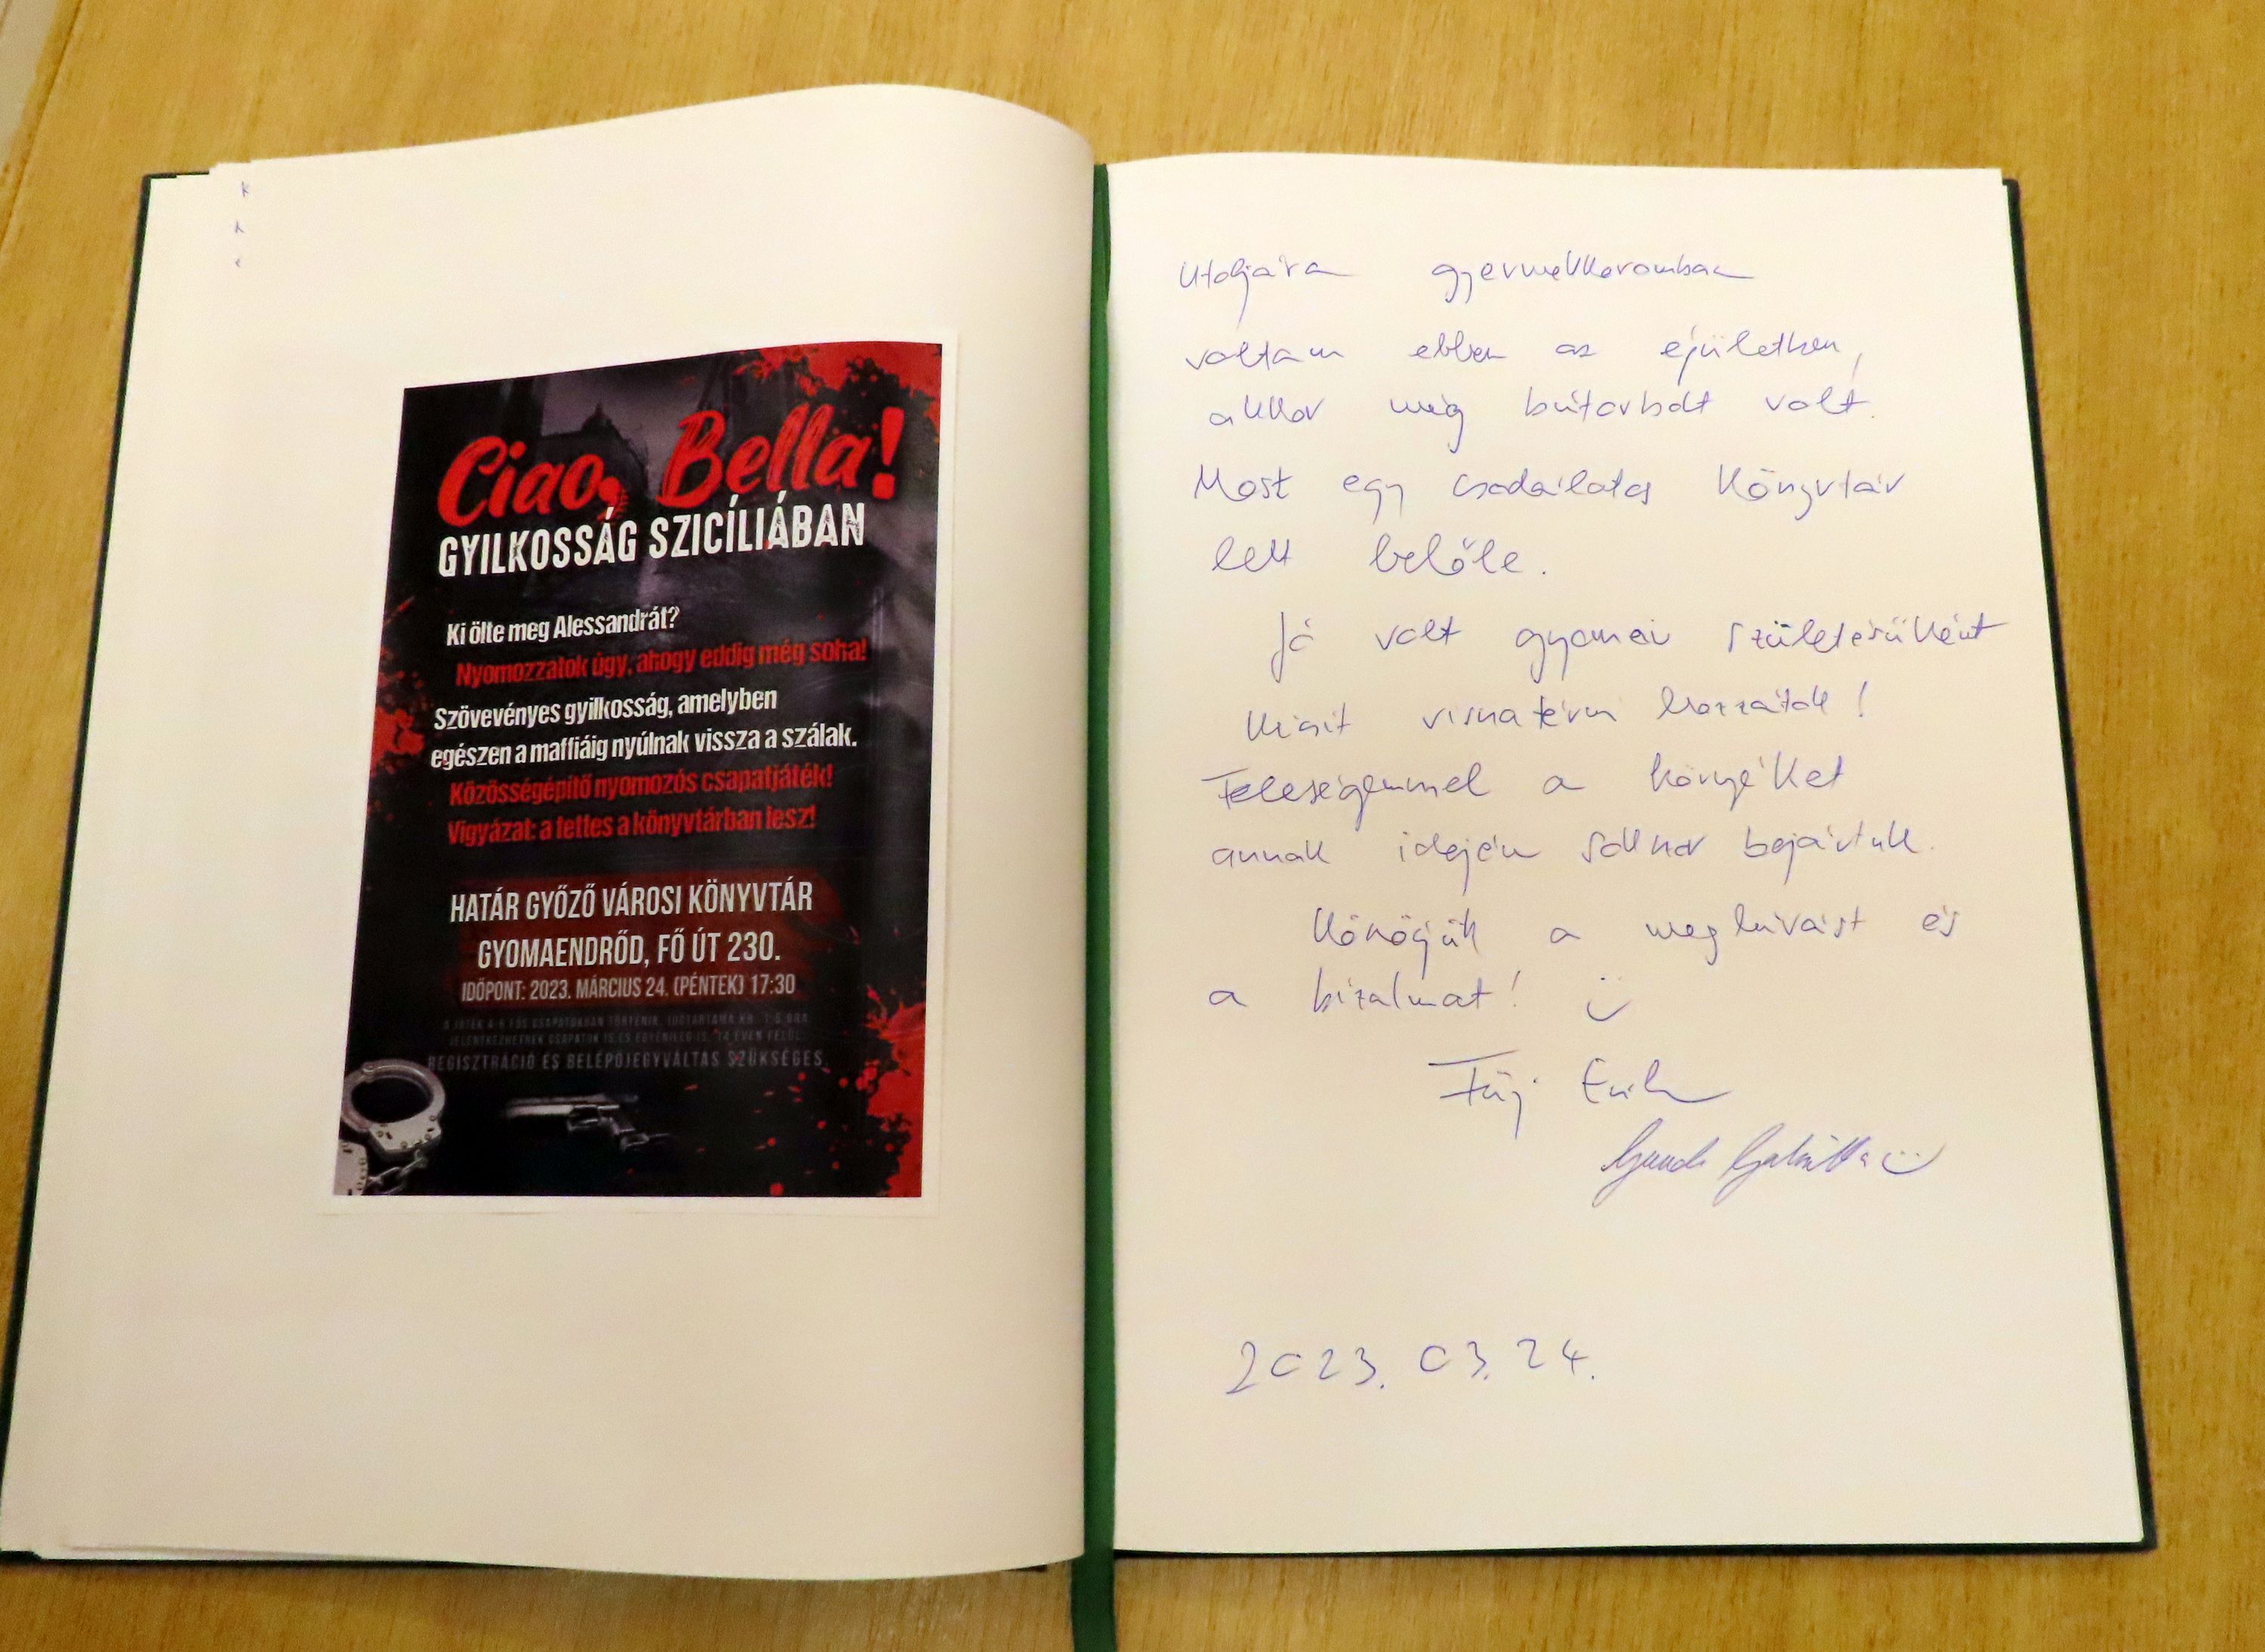 Ciao, Bella!
GYILKOSSÁG SZICÍLIÁBAN
Ki ölte meg Alessandrát?
Nyomozzatok úgy, ahogy eddig még soha!
Szövevényes gyilkosság, amelyben
egészen a maffiáig nyúlnak vissza a szálak.
Közösségépítő nyomozós csapatjáték!
Vigyázat: a tettes a könyvtárban lesz!
HATÁR GYŐZŐ VÁROSI KÖNYVTÁR
GYOMAENDRŐD, FŐ ÚT 230.
IDŐPONT: 2023. MÁRCIUS 24. (PÉNTEK) 17:30
REGISZTRÁCIÓ ÉS BELÉPŐJEGYVÁLTÁS SZÜKSÉGES.
Utoljára gyermekkoromban
voltam ebben az épületben,
akkor még bútorbolt volt.
Most egy csodálatos Könyvtár
lett belőle.
Jó volt gyomai születésűként
kicsit visszatérni hozzátok!
Feleségemmel a környéket
annak idején sokkor bejártuk.
Könögjük a meghívást és
a bizalmat!
Füj Erik
2023. 03. 24.